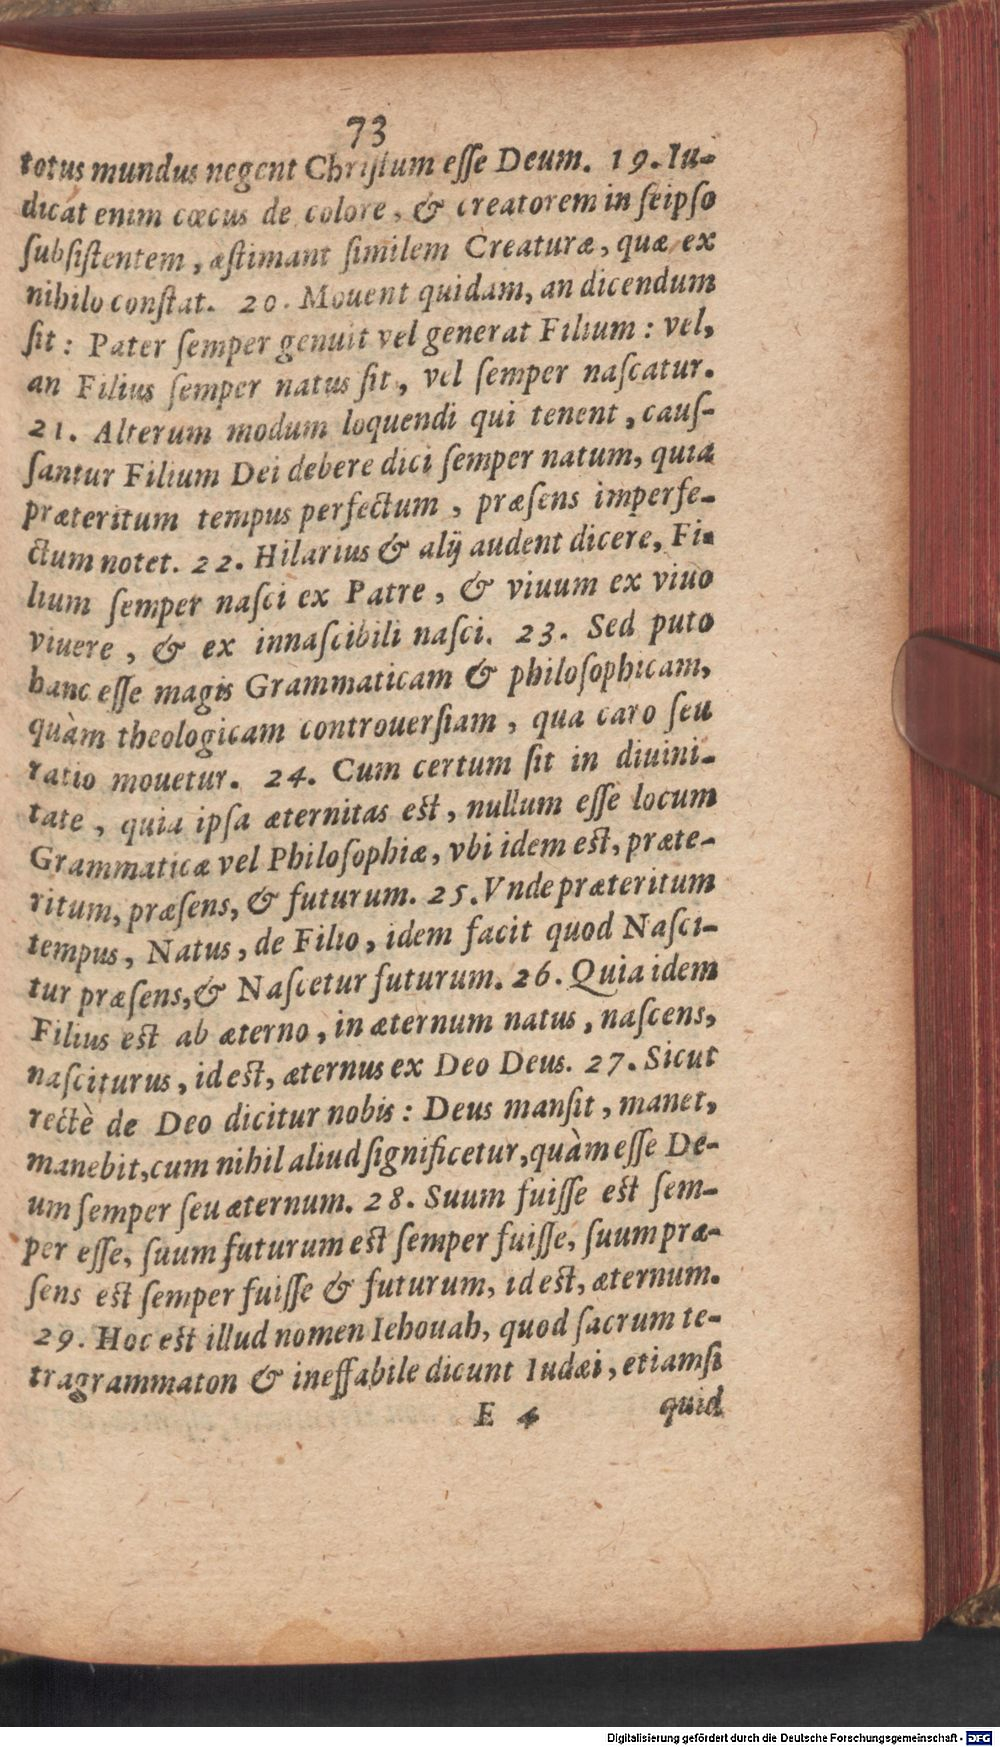 73
totus mundus negent Chriſtum eſſe Deum. 19. Iu-
dicat enim cœcus de colore, & creatorem in ſeipſo
ſubſiſtentem, æſtimant ſimilem Creaturæ, quæ ex
nihilo conſtat. 20. Mouent quidam, an dicendum
ſit: Pater ſemper genuit vel generat Filium: vel,
an Filius ſemper natus ſit, vel ſemper naſcatur.
21. Alterum modum loquendi qui tenent, cauſ-
ſantur Filium Dei debere dici ſemper natum, quia
præteritum tempus perfectum, præſens imperfe-
ctum notet. 22. Hilarius & alij audent dicere, Fi-
lium ſemper naſci ex Patre, & viuum ex viuo
viuere, & ex innaſcibili naſci. 23. Sed puto
hanc eſſe magis Grammaticam & philoſophicam,
quàm theologicam controuerſiam, qua caro ſeu
ratio mouetur. 24. Cum certum ſit in diuini-
tate, quia ipſa æternitas eſt, nullum eſſe locum
Grammaticæ vel Philoſophiæ, vbi idem eſt, præte-
ritum, præſens, & futurum. 25. Vnde præteritum
tempus, Natus, de Filio, idem facit quod Naſci-
tur præſens, & Naſcetur futurum. 26. Quia idem
Filius eſt ab æterno, in æternum natus, naſcens,
naſciturus, id eſt, æternus ex Deo Deus. 27. Sicut
rectè de Deo dicitur nobis: Deus manſit, manet,
manebit, cum nihil aliud ſignificetur, quàm eſſe De-
um ſemper ſeu æternum. 28. Suum fuiſſe eſt ſem-
per eſſe, ſuum futurum eſt ſemper fuiſſe, ſuum præ-
ſens eſt ſemper fuiſſe & futurum, id eſt, æternum.
29. Hoc eſt illud nomen Iehouah, quod ſacrum te-
tragrammaton & ineffabile dicunt Iudæi, etiamſi
E 4 quid
Digitalisierung gefördert durch die Deutsche Forschungsgemeinschaft - DFG